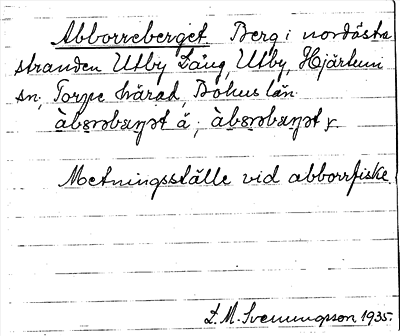 Abborreberget. Berg i nordöstra
stranden Utby Tång, Utby, Hjärtum
sn, Torpe härad, Bohus län.
Metningsställe vid abborrfiske.
F. M. Svenningsson 1935.